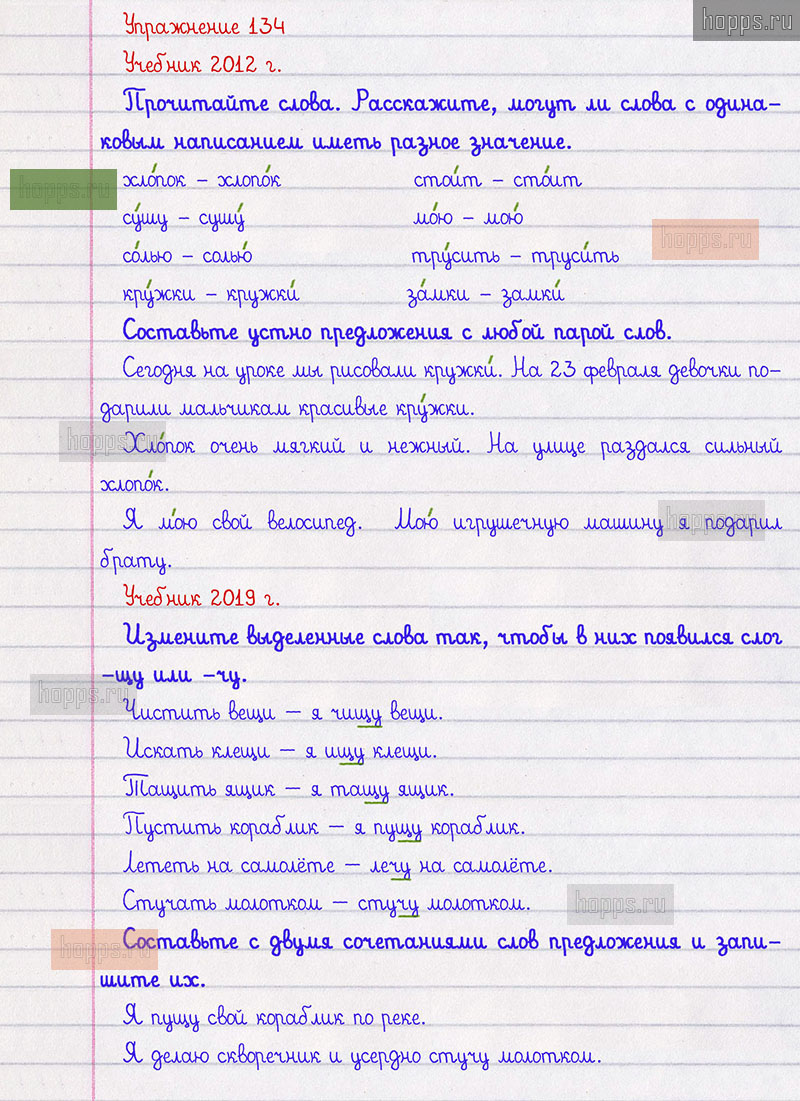 hopps.ru
Упражнение 134
Учебник 2012 г.
Прочитайте слова. Расскажите, могут ли слова с одина-
ковым написанием иметь разное значение.
хло́пок – хлопо́к стои́т – сто́ит
hopps.ru
су́шу – сушу́ мо́ю – мою́
hopps.ru
со́лью – солью́ тру́сить – труси́ть
кру́жки – кружки́ за́мки – замки́
Составьте устно предложения с любой парой слов.
Сегодня на уроке мы рисовали кружки́. На 23 февраля девочки по-
дарили мальчикам красивые кру́жки.
hopps.ru
Хло́пок очень мягкий и нежный. На улице раздался сильный
хлопо́к.
Я мо́ю свой велосипед. Мою́ игрушечную машину я подарил
hopps.ru
брату.
Учебник 2019 г.
Измените выделенные слова так, чтобы в них появился слог
-щу или -чу.
hopps.ru
Чистить вещи – я чищу вещи.
Искать клещи – я ищу клещи.
Тащить ящик – я тащу ящик.
Пустить кораблик – я пущу кораблик.
Лететь на самолёте – лечу на самолёте.
Стучать молотком – стучу молотком.
hopps.ru
Составьте с двумя сочетаниями слов предложения и запи-
hopps.ru
шите их.
Я пущу свой кораблик по реке.
Я делаю скворечник и усердно стучу молотком.